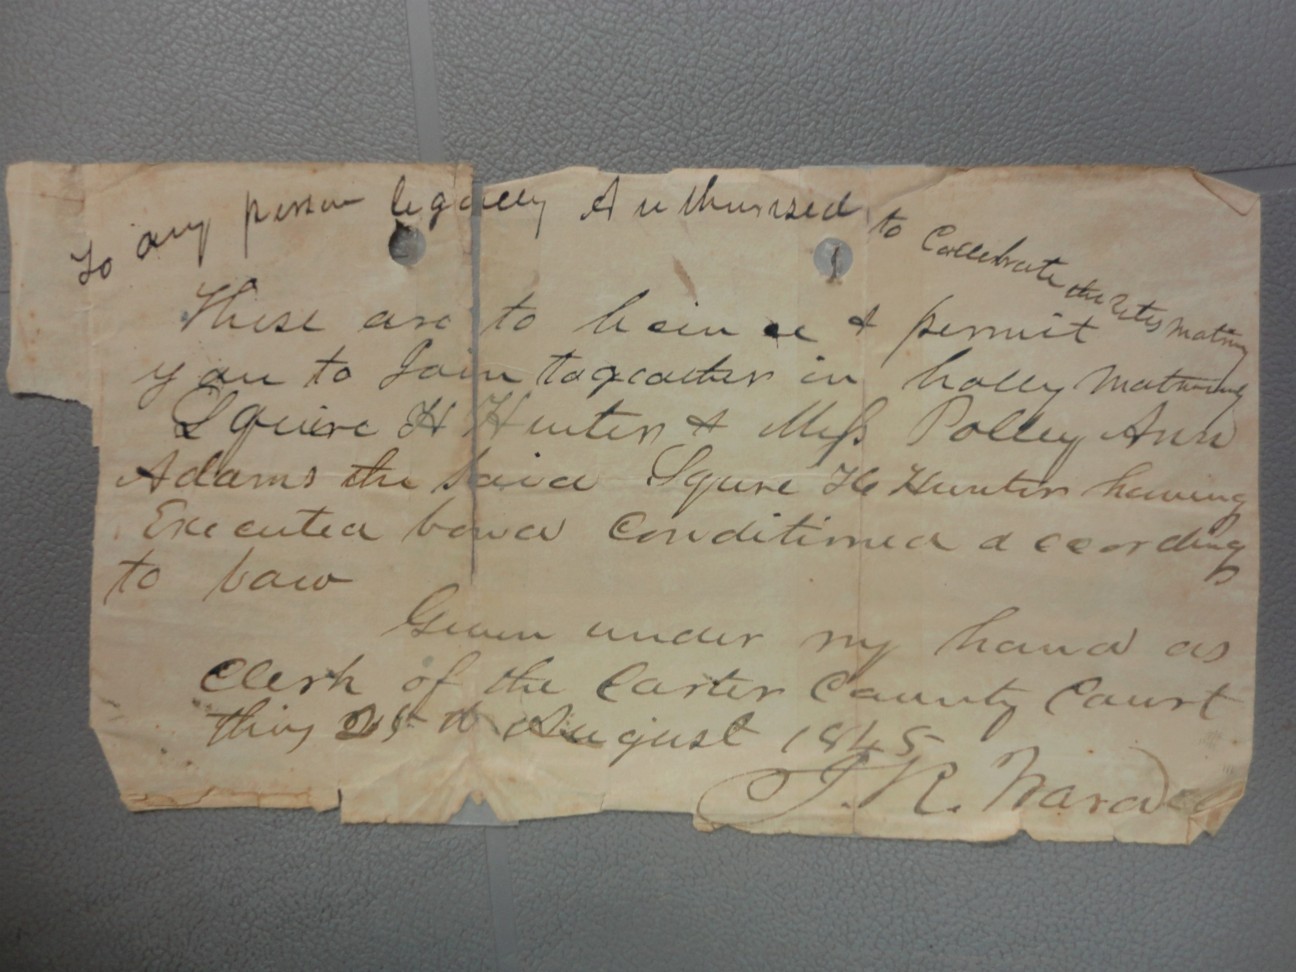 To any person legally Authurised to Cellebrate the rites matrimony
These are to licince & permit
you to Join togeather in holly Matrimony
Squire H Hunter & Miss Polley Ann
Adams the said Squire H Hunter having
Executed bond Conditioned according
to law
Given under my hand as
Clerk of the Carter County Court
this August 1845
J. R. Ward